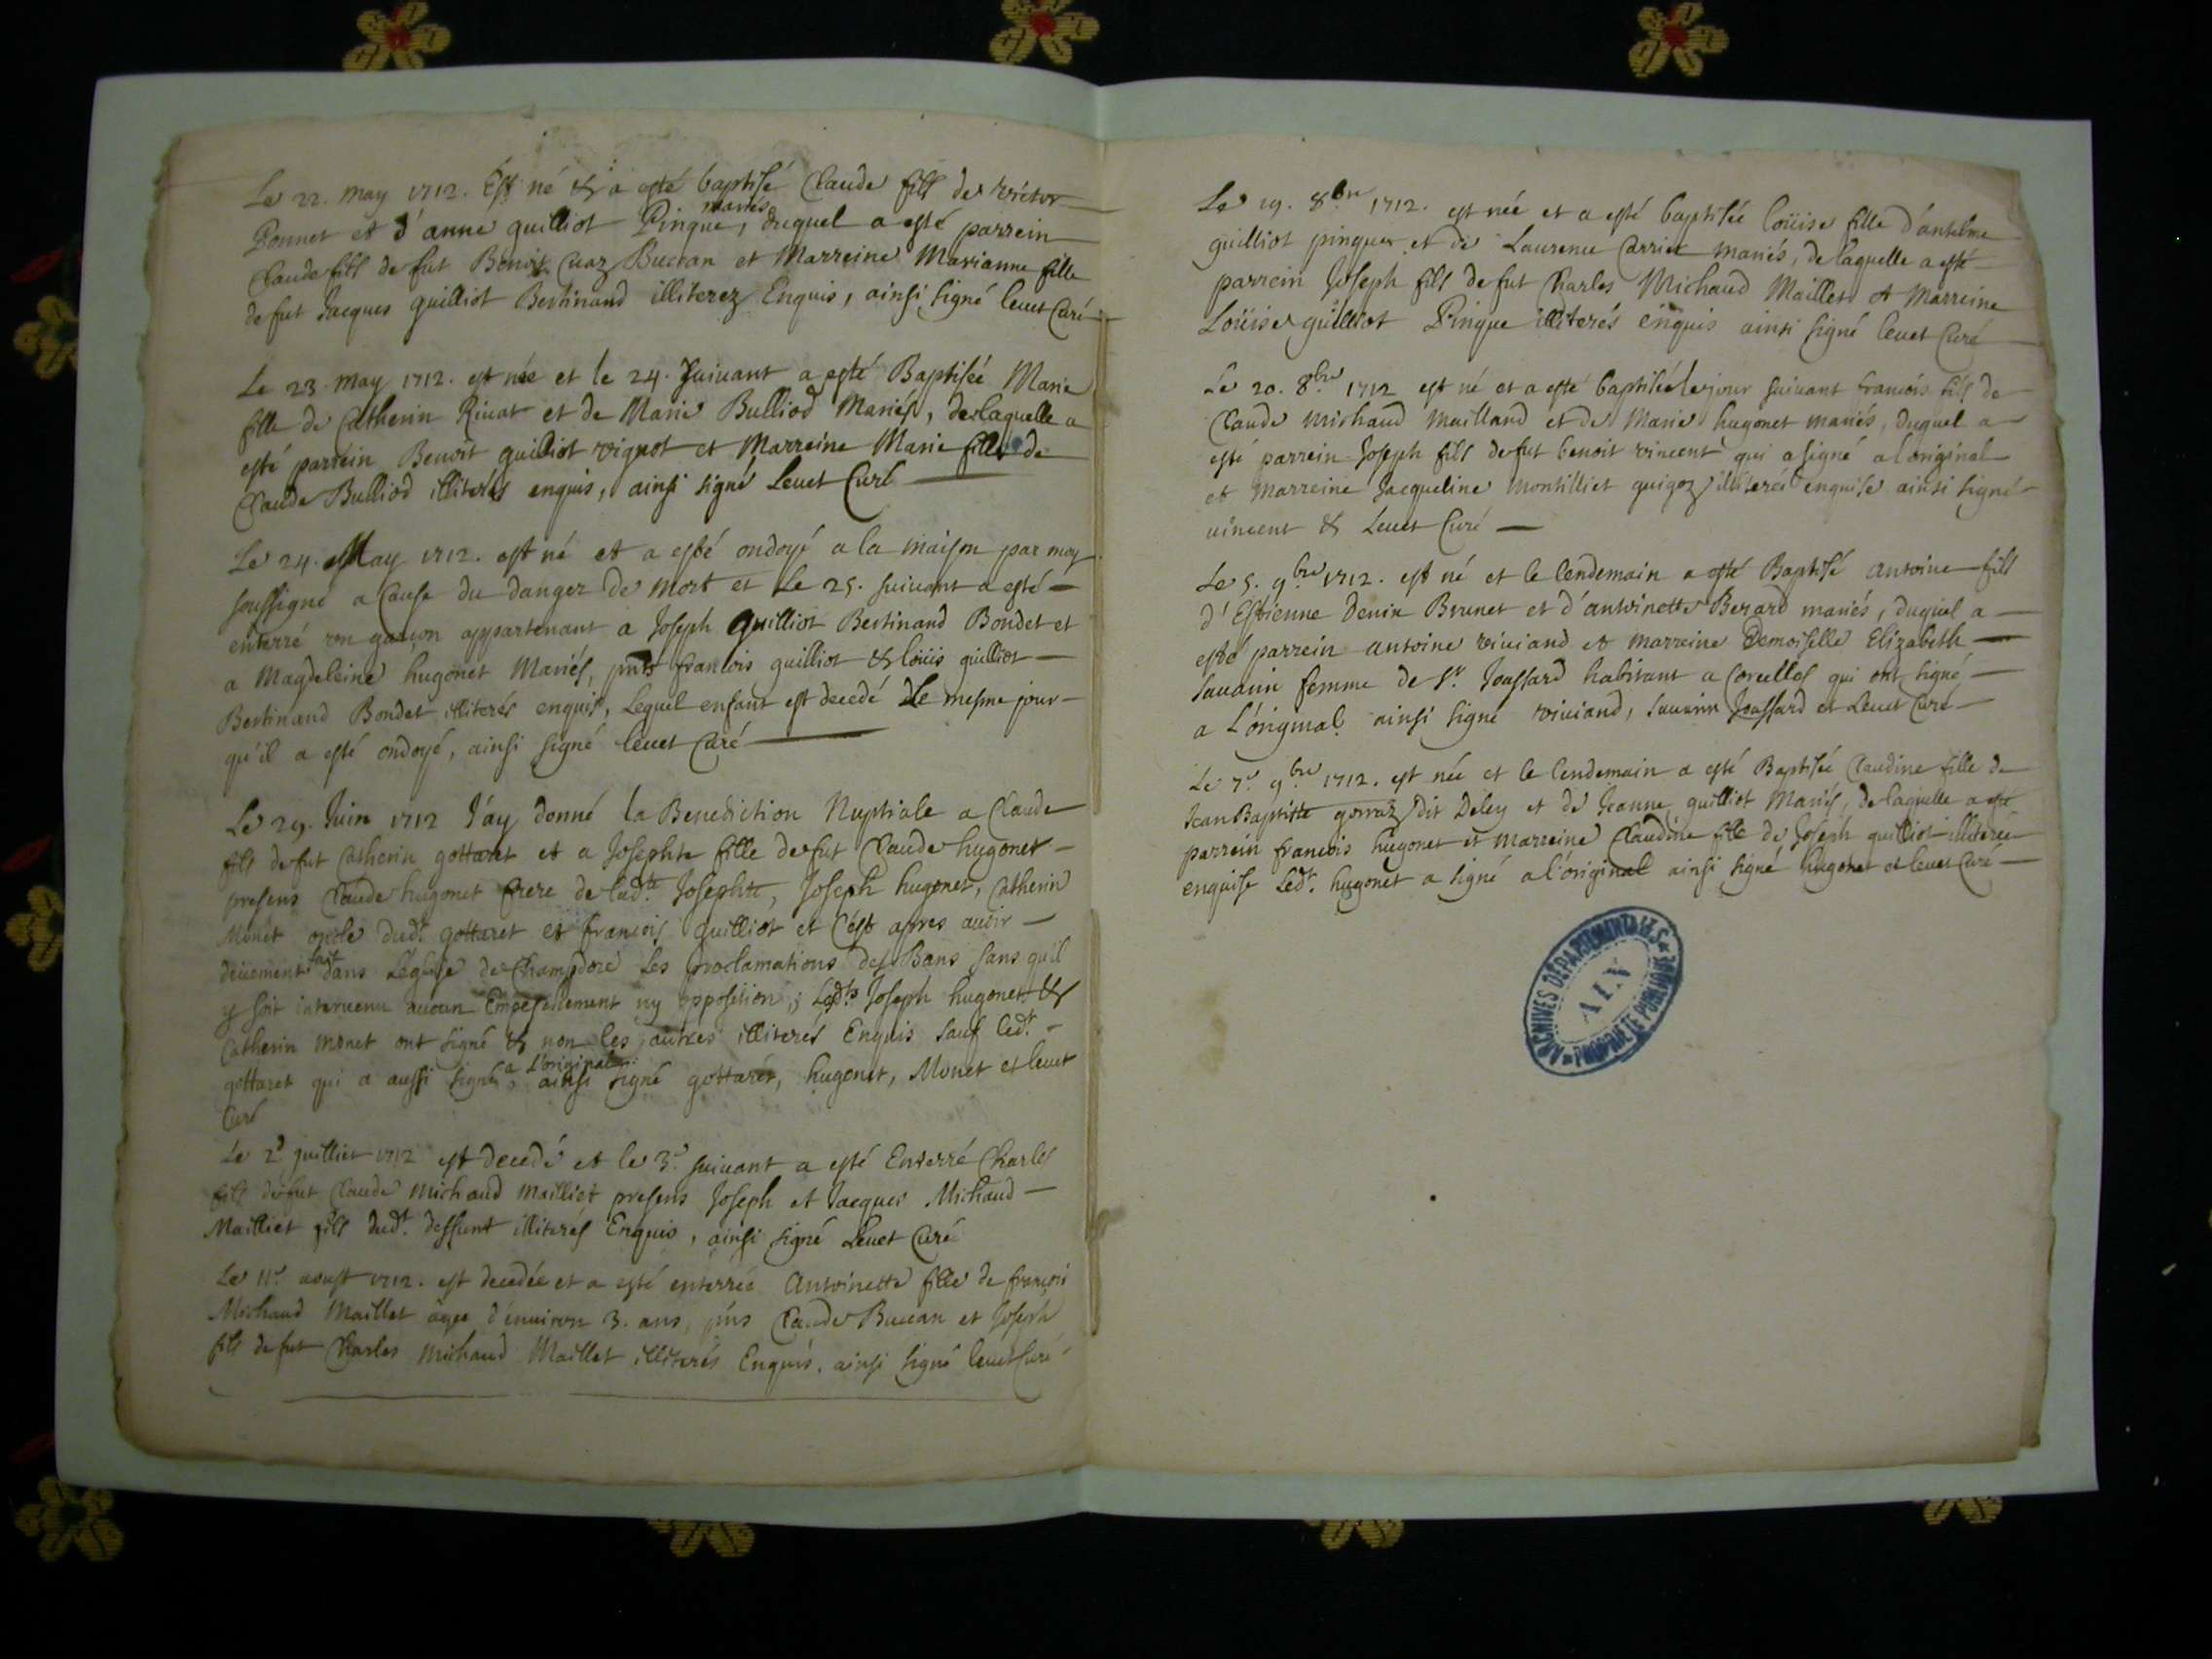 Le 22. may 1712. Est né & a esté baptisé Claude fils de victor
Ponnet et d'anne guilliot Pingue, mariés duquel a esté parrein
Claude fils de fut Benoit Cuaz Buccan et Marreine Marianne fille
de fut Jacques guilliot Bertinand illiterez Enquis, ainsi signé leuet Curé
Le 23. may 1712. est née et le 24. Suiuant a esté Baptisée Marie
fille de Catherin Riuat et de Marie Bulliod Mariés, de laquelle a
esté parrein Benoit guilliot vignot et Marreine Marie fille de
Claude Bulliod illiterés enquis, ainsi signé Leuet Curé
Le 24. May 1712. est né et a esté ondoyé a la maison par moy
soussigné a Cause du danger de mort et Le 25. suiuant a esté
enterré vn garçon appartenant a Joseph Guilliot Bertinand Bondet et
a Magdeleine hugonet Mariés, pnts francois guilliot & loüis guilliot
Bertinand Bondet illiterés enquis, Lequel enfant est decedé Le mesme jour
qu'il a esté ondoyé, ainsi signé leuet Curé
Le 29. Juin 1712 J'ay donné la Benediction Nuptiale a Claude
fils de fut Catherin gottaret et a Josephte fille de fut Claude hugonet
presens Claude hugonet frere de lad.te Josephte, Joseph hugonet, Catherin
Monet oncle dud.t gottaret et francois Guilliot et C'est apres auoir
deüement fait dans L'eglise de Champdore Les proclamations des Bans sans qu'il
y soit interuenu aucun Empeschement ny opposition; Lesd.ts Joseph hugonet &
Catherin monet ont signé & non les autres illiterés Enquis sauf led.t
gottaret qui a aussi signé a L'original, ainsi signé gottaret, hugonet, Monet et leuet
Curé
Le 2.e juilliet 1712 est decedé et le 3.e suiuant a esté Enterré Charles
fils de fut Claude Michaud Mailliet presens Joseph et Jacques Michaud
Mailliet fils dud.t deffunt illiterés Enquis, ainsi signé Leuet Curé
Le 11.e aoust 1712. est decedée et a esté enterrée Antoinette fille de françois
Michaud Maillet agée d'enuiron 3. ans, pns Claude Buccan et Joseph
fils de fut Charles Michaud Maillet illiterés Enquis. ainsi signé leuet Curé
Le 19. 8bre 1712. est née et a esté baptisée loüise fille d'antelme
guilliot pingue et de Laurence Carrier mariés, de laquelle a esté
parrein Joseph fils de fut Charles Michaud Maillet et Marreine
Loüise guilliot Pingue illiterés enquis ainsi signé leuet Curé
Le 20. 8bre 1712 est né et a esté baptisé le jour suiuant francois fils de
Claude Michaud Mailland et de Marie hugonet mariés, duquel a
esté parrein Joseph fils de fut benoit vincent qui a signé a l'original
et Marreine Jacqueline montilliet guigoz illiterée enquise ainsi signé
vincent & Leuet Curé
Le 5. 9bre 1712. est né et le lendemain a esté Baptisé Antoine fils
d'Estienne Denin Brunet et d'antoinette Berard mariés, duquel a
esté parrein antoine viuiand et marreine Demoiselle Elizabeth
Sauarin femme de Sr. Joussard habitant a Corcelles qui ont signé
a L'original ainsi signé viuiand, Sauarin Joussard et Leuet Curé
Le 7.e 9bre 1712. est née et le lendemain a esté Baptisée Claudine fille de
Jean Baptiste gorraz dit Deley et de Jeanne guilliot Mariés, de laquelle a esté
parrein francois hugonet et marreine Claudine fille de Joseph guilliot illiterée
enquise Led.t hugonet a signé a l'original ainsi signé hugonet et leuet Curé
ARCHIVES DÉPARTEMENTALES
AIN
PROPRIÉTÉ PUBLIQUE